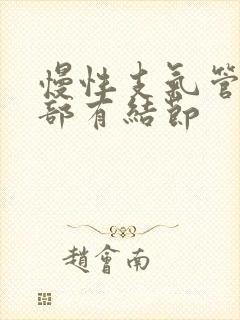 慢性支氣管
部有結節
趙會南